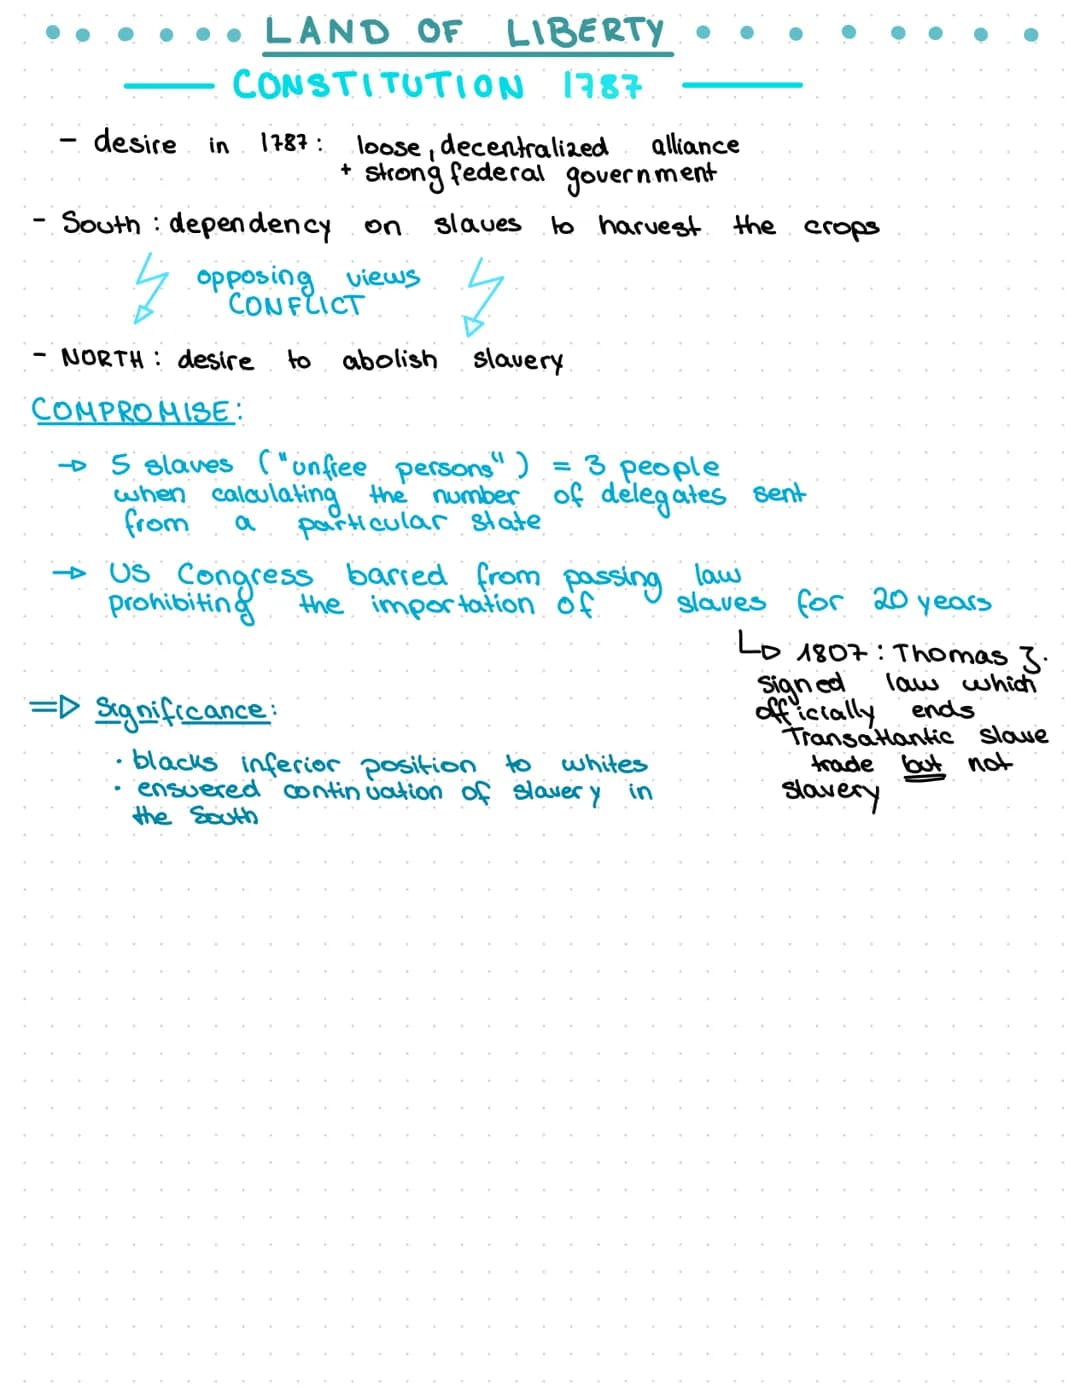 LAND OF LIBERTY
CONSTITUTION 1787
- desire in 1787: loose, decentralized alliance
+ strong federal government
- South : dependency on slaves to harvest the crops
opposing views
CONFLICT
- NORTH : desire to abolish slavery
COMPROMISE:
→ 5 slaves ("unfree persons") = 3 people
when calculating the number of delegates sent
from a particular state
→ US Congress barred from passing law
prohibiting the importation of slaves for 20 years
↳ 1807: Thomas J.
signed law which
officially ends
Transatlantic slave
trade but not
slavery
=> Significance:
· blacks inferior position to whites
· ensuered continuation of slavery in
the South